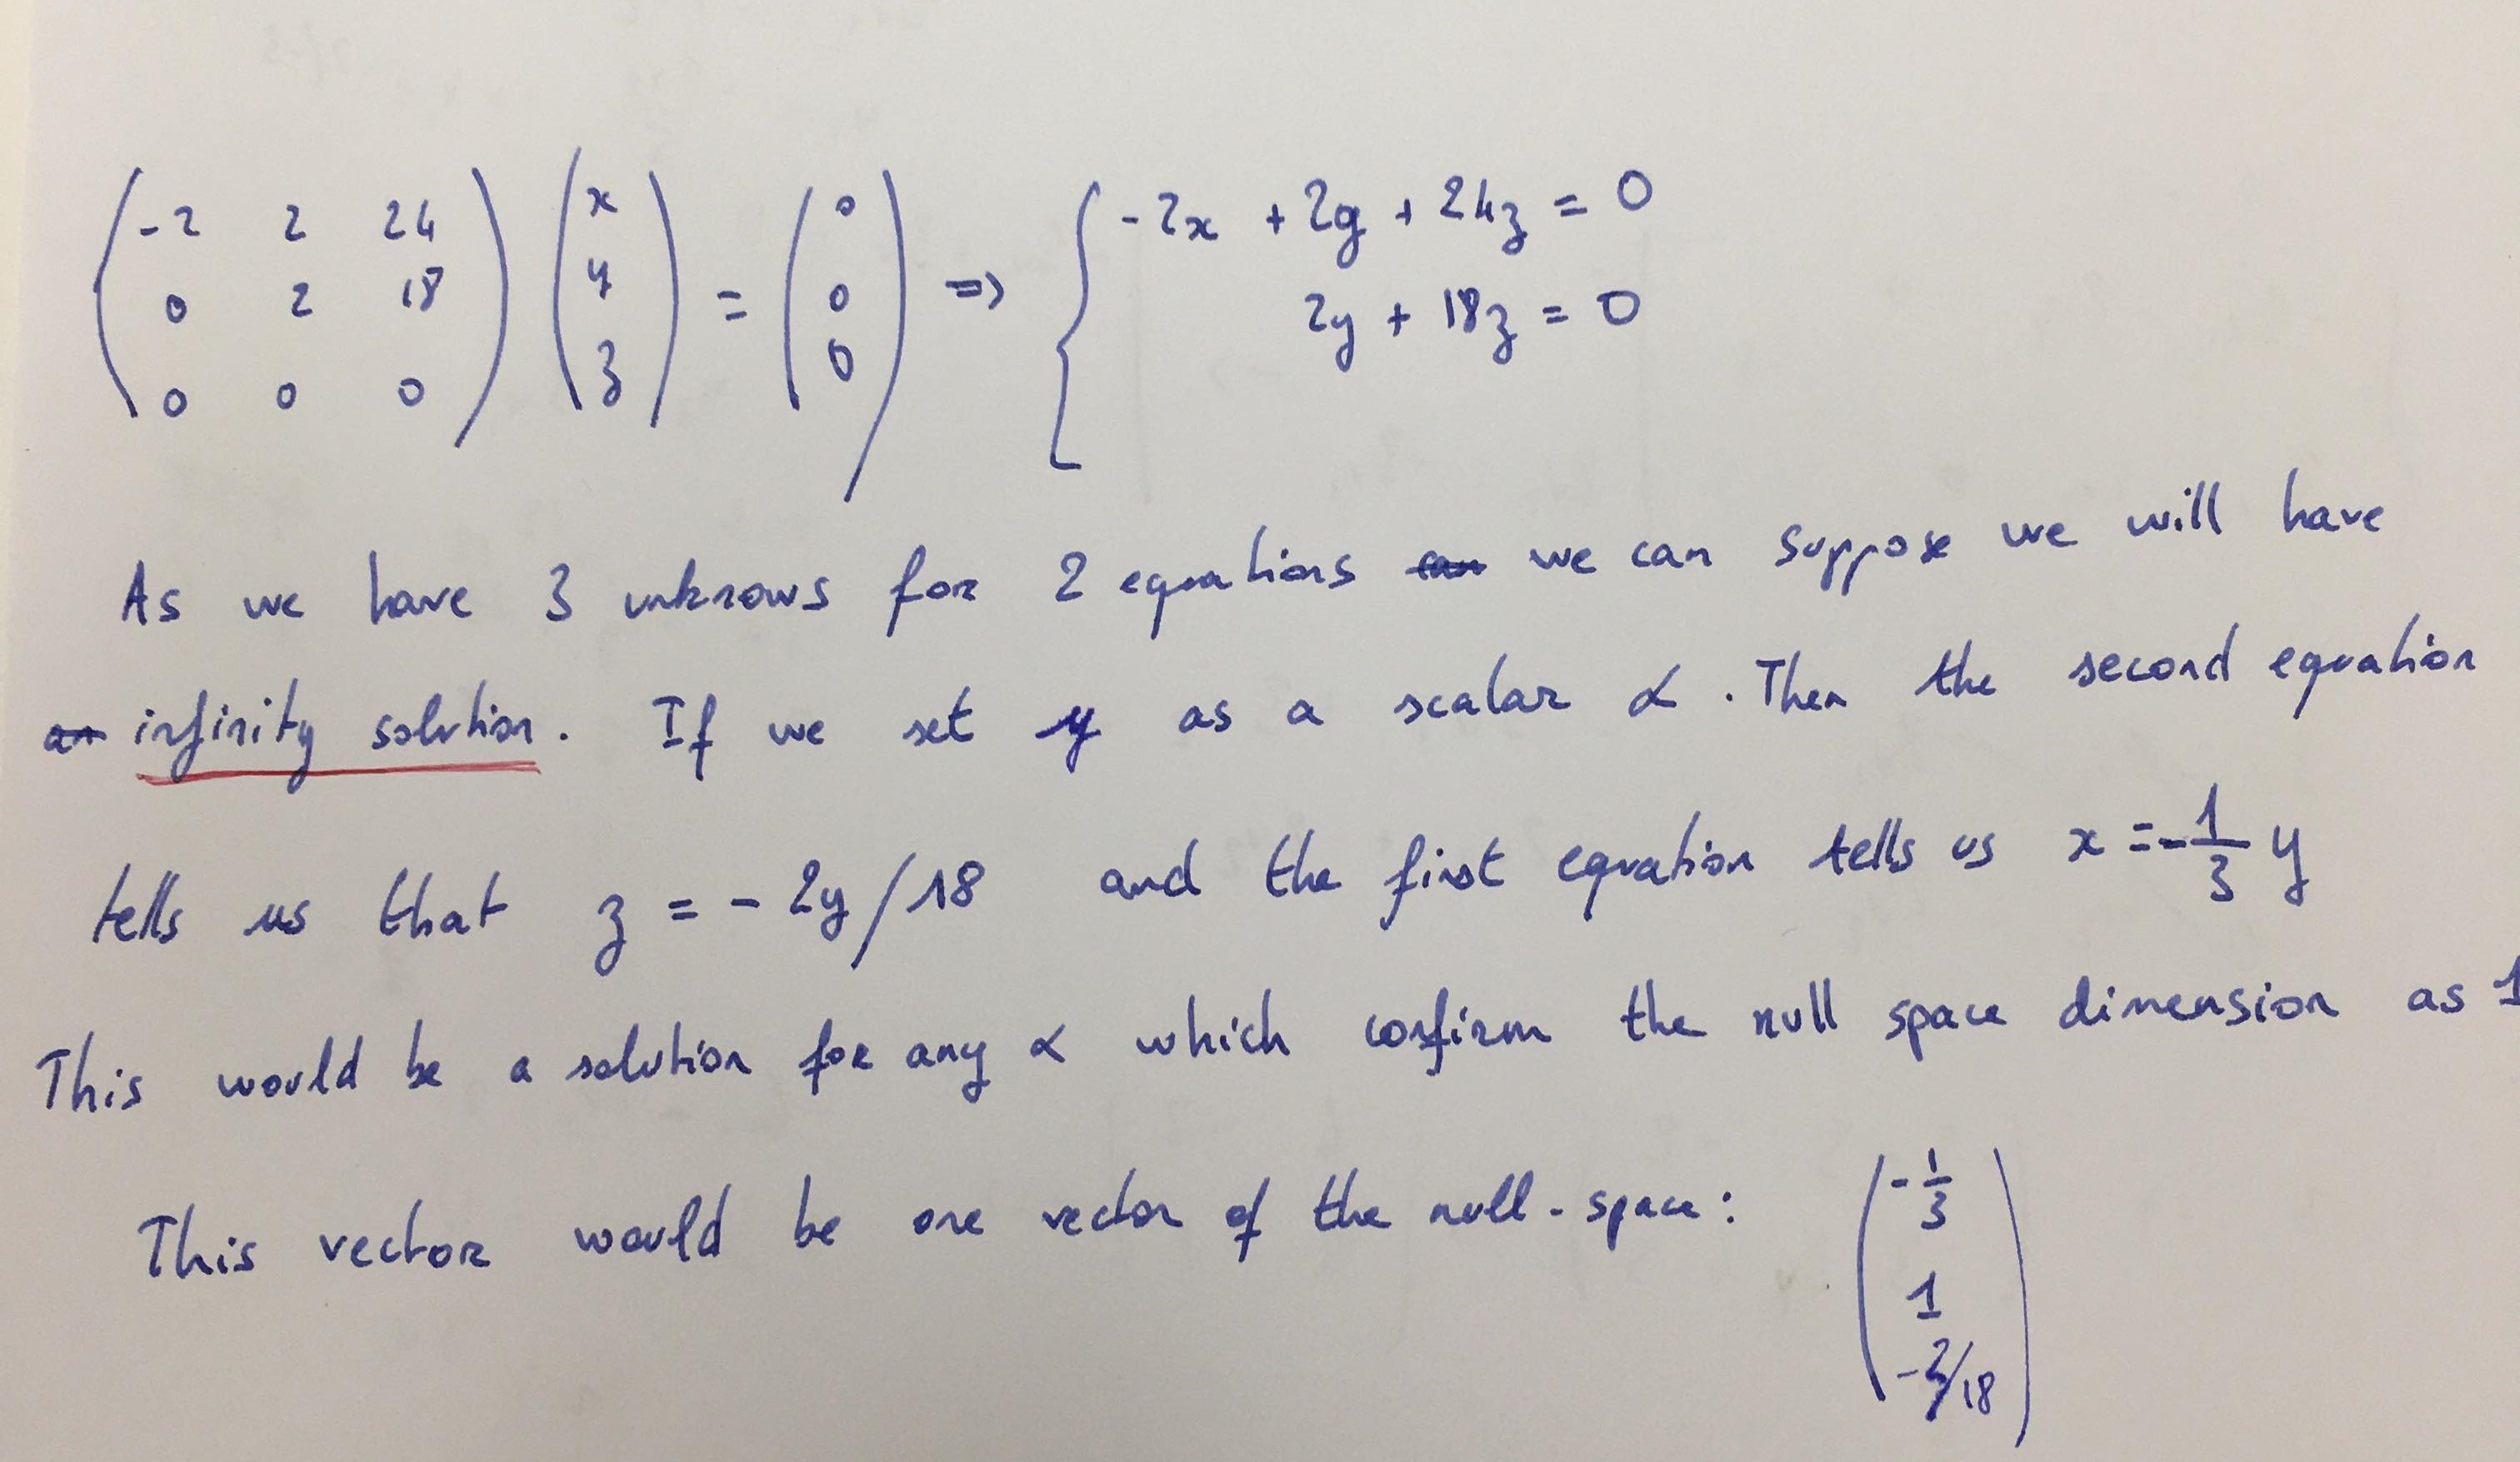 ( -2 2 24 ; 0 2 18 ; 0 0 0 ) ( x ; y ; z ) = ( 0 ; 0 ; 0 ) => { -2x + 2y + 24z = 0
2y + 18z = 0
As we have 3 unknows for 2 equations can we can suppose we will have
an infinity solution. If we set y as a scalar α. Then the second equation
tells us that z = - 2y/18 and the first equation tells us x = -1/3 y
This would be a solution for any α which confirm the null space dimension as 1
This vector would be one vector of the null-space: ( -1/3 ; 1 ; -2/18 )